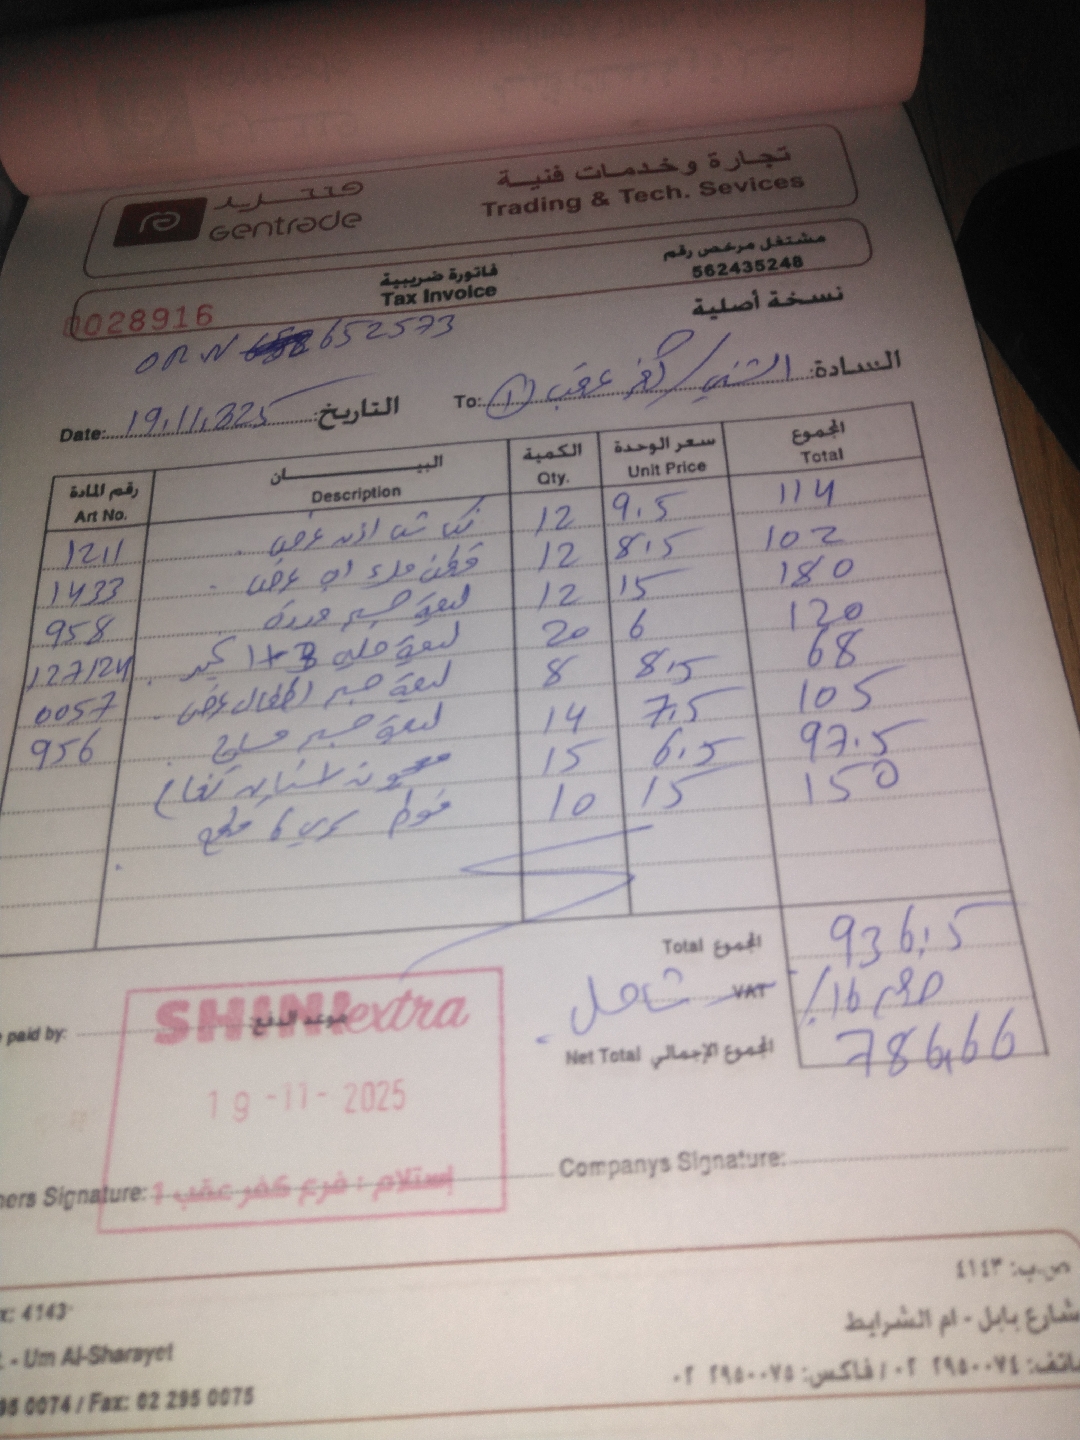 جنتريد
Gentrade
تجارة وخدمات فنية
Trading & Tech. Sevices
فاتورة ضريبية
Tax Invoice
مشتغل مرخص رقم
562435248
0028916
نسخة أصلية
652573
السادة: الشني / كفر عقب 1
To:
Date: 19.11.325 التاريخ:
رقم المادة البيـــــــان الكمية سعر الوحدة المجموع
Art No. Description Qty. Unit Price Total
1211 عرض 12 9.5 114
1433 قطن عرض 12 8.5 102
958 ليفة جسم مدورة 12 15 180
127/124 ليفة 20 6 120
0057 ليفة جسم اطفال عرض 8 8.5 68
956 ليفة جسم 14 7.5 105
معجون اسنان 15 6.5 97.5
6 قطع 10 15 150
Total المجموع 936.5
شامل VAT خصم 16%
Net Total المجموع الإجمالي 786.66
paid by: موعد الدفع:
SHINI extra
19-11-2025
إستلام : فرع كفر عقب 1
ers Signature:
Companys Signature:
x: 4143
ص.ب: ٤١٤٣
- Um Al-Sharayet
شارع بابل - ام الشرايط
95 0074 / Fax: 02 295 0075
اتف: ٠٢ ٢٩٥٠٠٧٤ / فاكس: ٠٢ ٢٩٥٠٠٧٥